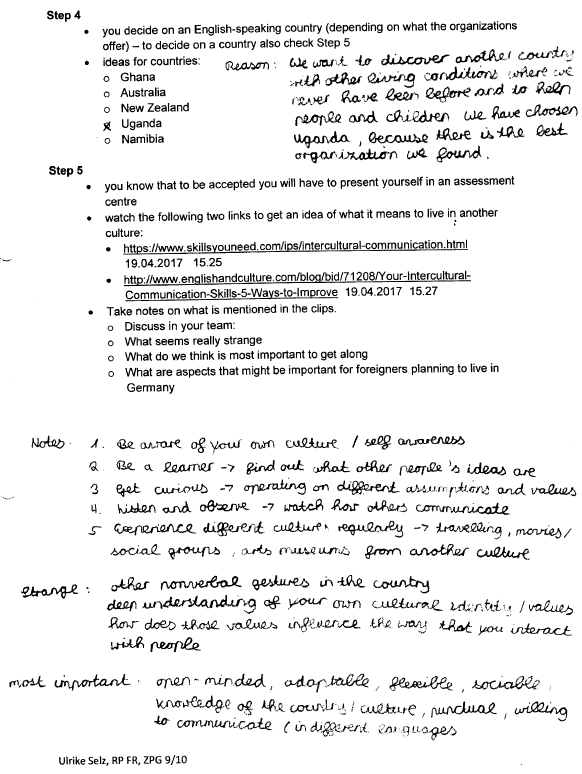 Step 4
• you decide on an English-speaking country (depending on what the organizations
offer) – to decide on a country also check Step 5
• ideas for countries:
o Ghana
o Australia
o New Zealand
x Uganda
o Namibia
Reason: We want to discover another country
with other living conditions where we
never have been before and to help
people and children we have choosen
Uganda, because there is the best
organization we found.
Step 5
• you know that to be accepted you will have to present yourself in an assessment
centre
• watch the following two links to get an idea of what it means to live in another
culture:
• https://www.skillsyouneed.com/ips/intercultural-communication.html
19.04.2017 15.25
• http://www.englishandculture.com/blog/bid/71208/Your-Intercultural-
Communication-Skills-5-Ways-to-Improve 19.04.2017 15.27
• Take notes on what is mentioned in the clips.
o Discuss in your team:
o What seems really strange
o What do we think is most important to get along
o What are aspects that might be important for foreigners planning to live in
Germany
Notes: 1. Be aware of your own culture / self awareness
2. Be a learner -> find out what other people's ideas are
3 Get curious -> operating on different assumptions and values
4. Listen and observe -> watch how others communicate
5 Experience different cultures regularly -> travelling, movies/
social groups, arts museums from another culture
strange: other nonverbal gestures in the country
deep understanding of your own cultural identity / values
how does those values influence the way that you interact
with people
most important: open-minded, adaptable, flexible, sociable,
knowledge of the country / culture, punctual, willing
to communicate (in different languages
Ulrike Selz, RP FR, ZPG 9/10